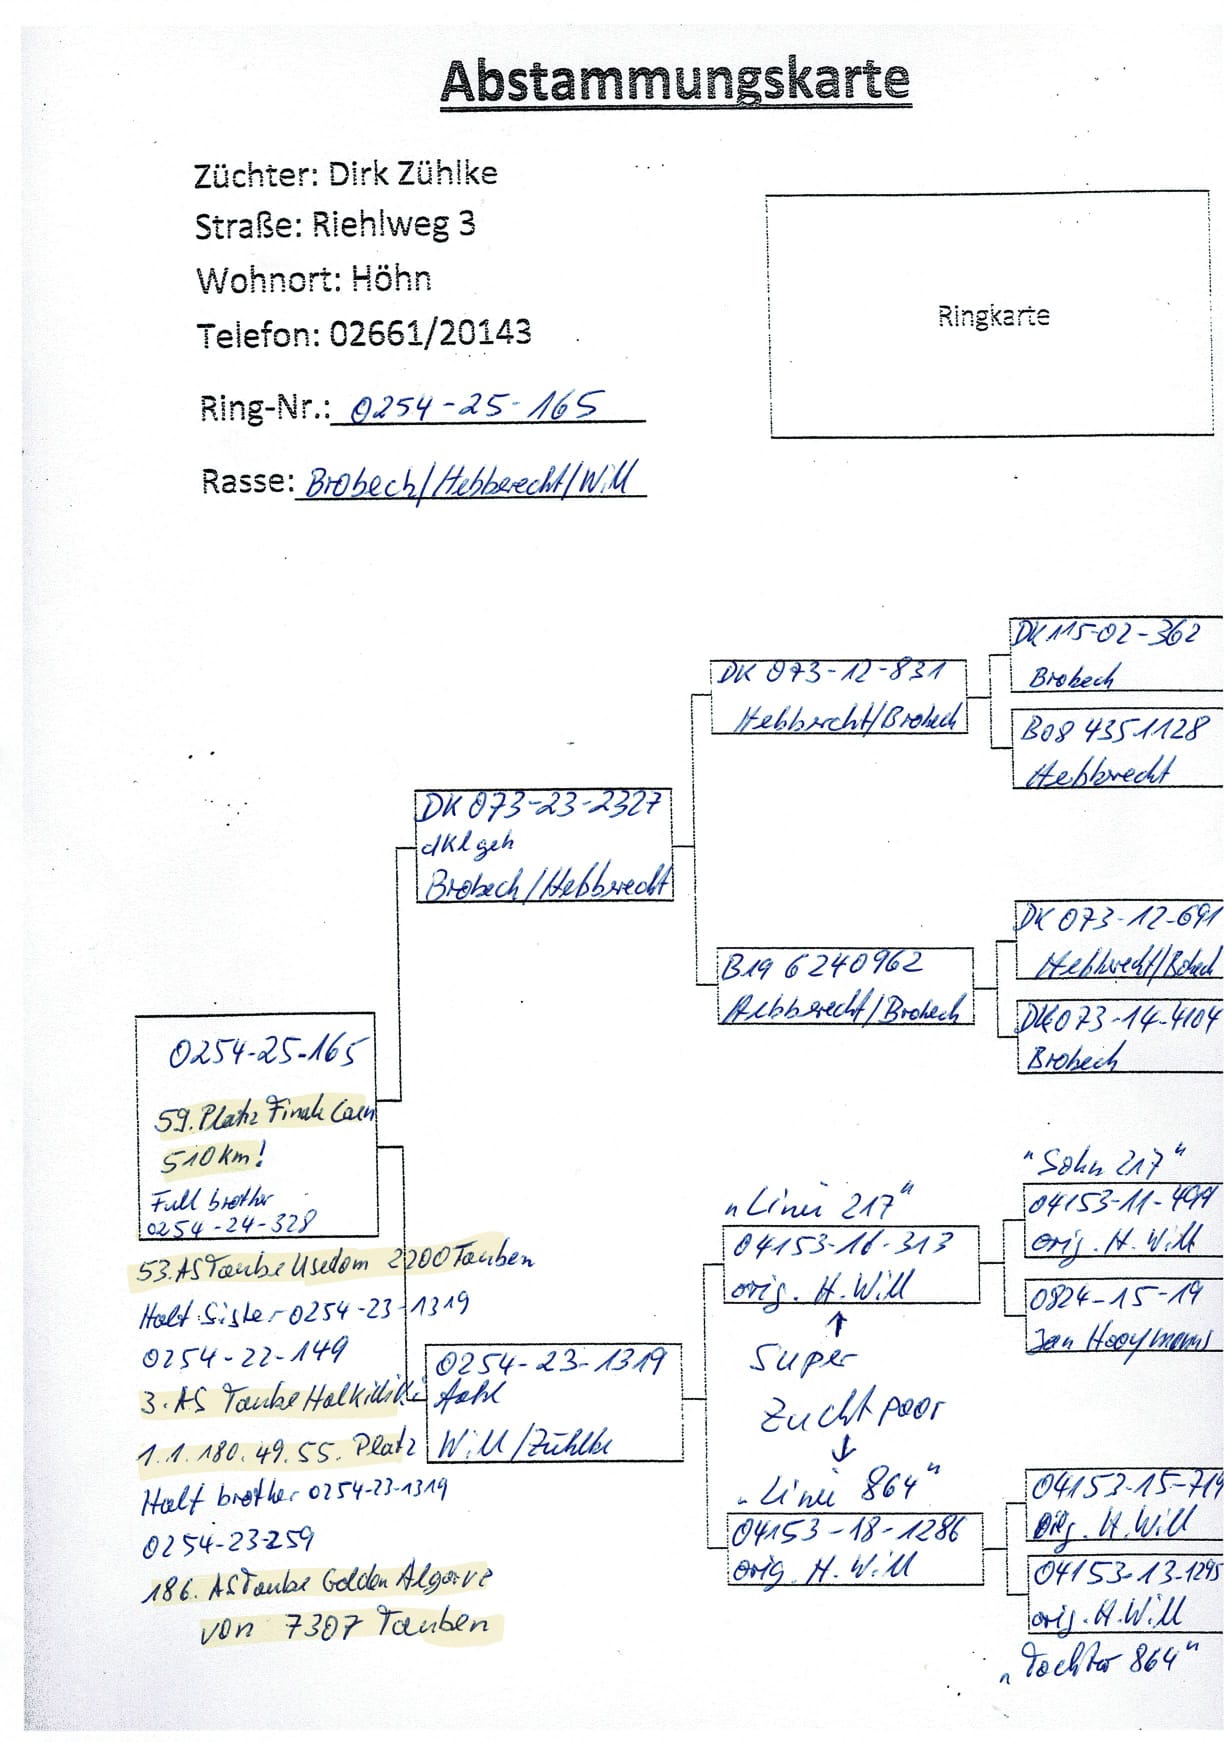 Abstammungskarte
Züchter: Dirk Zühlke
Straße: Riehlweg 3
Wohnort: Höhn
Telefon: 02661/20143
Ringkarte
Ring-Nr.: 0254-25-165
Rasse: Brobech/Hebberecht/Will
DK 115-02-362
Brobech
DK 073-12-831
Hebberecht/Brobech
B08 4351128
Hebberecht
DK 073-23-2327
dklgeh
Brobech/Hebberecht
DK 073-12-691
Hebberecht/Brobech
B19 6240962
Hebberecht/Brobech
DK 073-14-4104
Brobech
0254-25-165
59. Platz Finale Caen
510km!
Full brother
0254-24-328
53. AS Taube Usedom 2200 Tauben
Halt Sister 0254-23-1319
0254-22-149
3. AS Taube Halkidiki
1.1.180.49.55. Platz
Half brother 0254-23-1319
0254-23-259
186. AS Taube Golden Algarve
von 7307 Tauben
"Sohn 217"
"Linie 217"
04153-11-
orig. H. Will
04153-16-313
orig. H. Will
0824-15-19
Jan Hooymans
Super
Zuchtpaar
0254-23-1319
Will/Zühlke
"Linie 864"
04153-15-719
orig. H. Will
04153-18-1286
orig. H. Will
04153-13-1295
orig. H. Will
"Tochter 864"